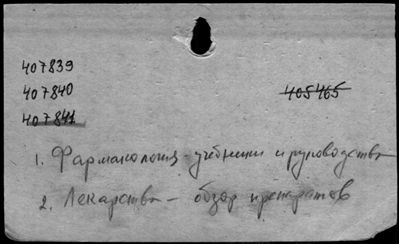 407839
407840 405465
407841
1. Фармакология - учебники и руководства
2. Лекарства - обзор препаратов